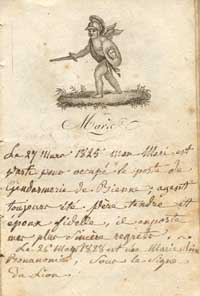 Marie
Le 27 Mars 1825 mon Mari est
parti pour occupé le poste de
Gendarmerie de Bienne; ayant
toujours été Père tendre et
epoux fidelle, il emporte
mes plus sincère regrets.
Le 26 May 1828 est née Marie
Sous la Signe
du Lion.